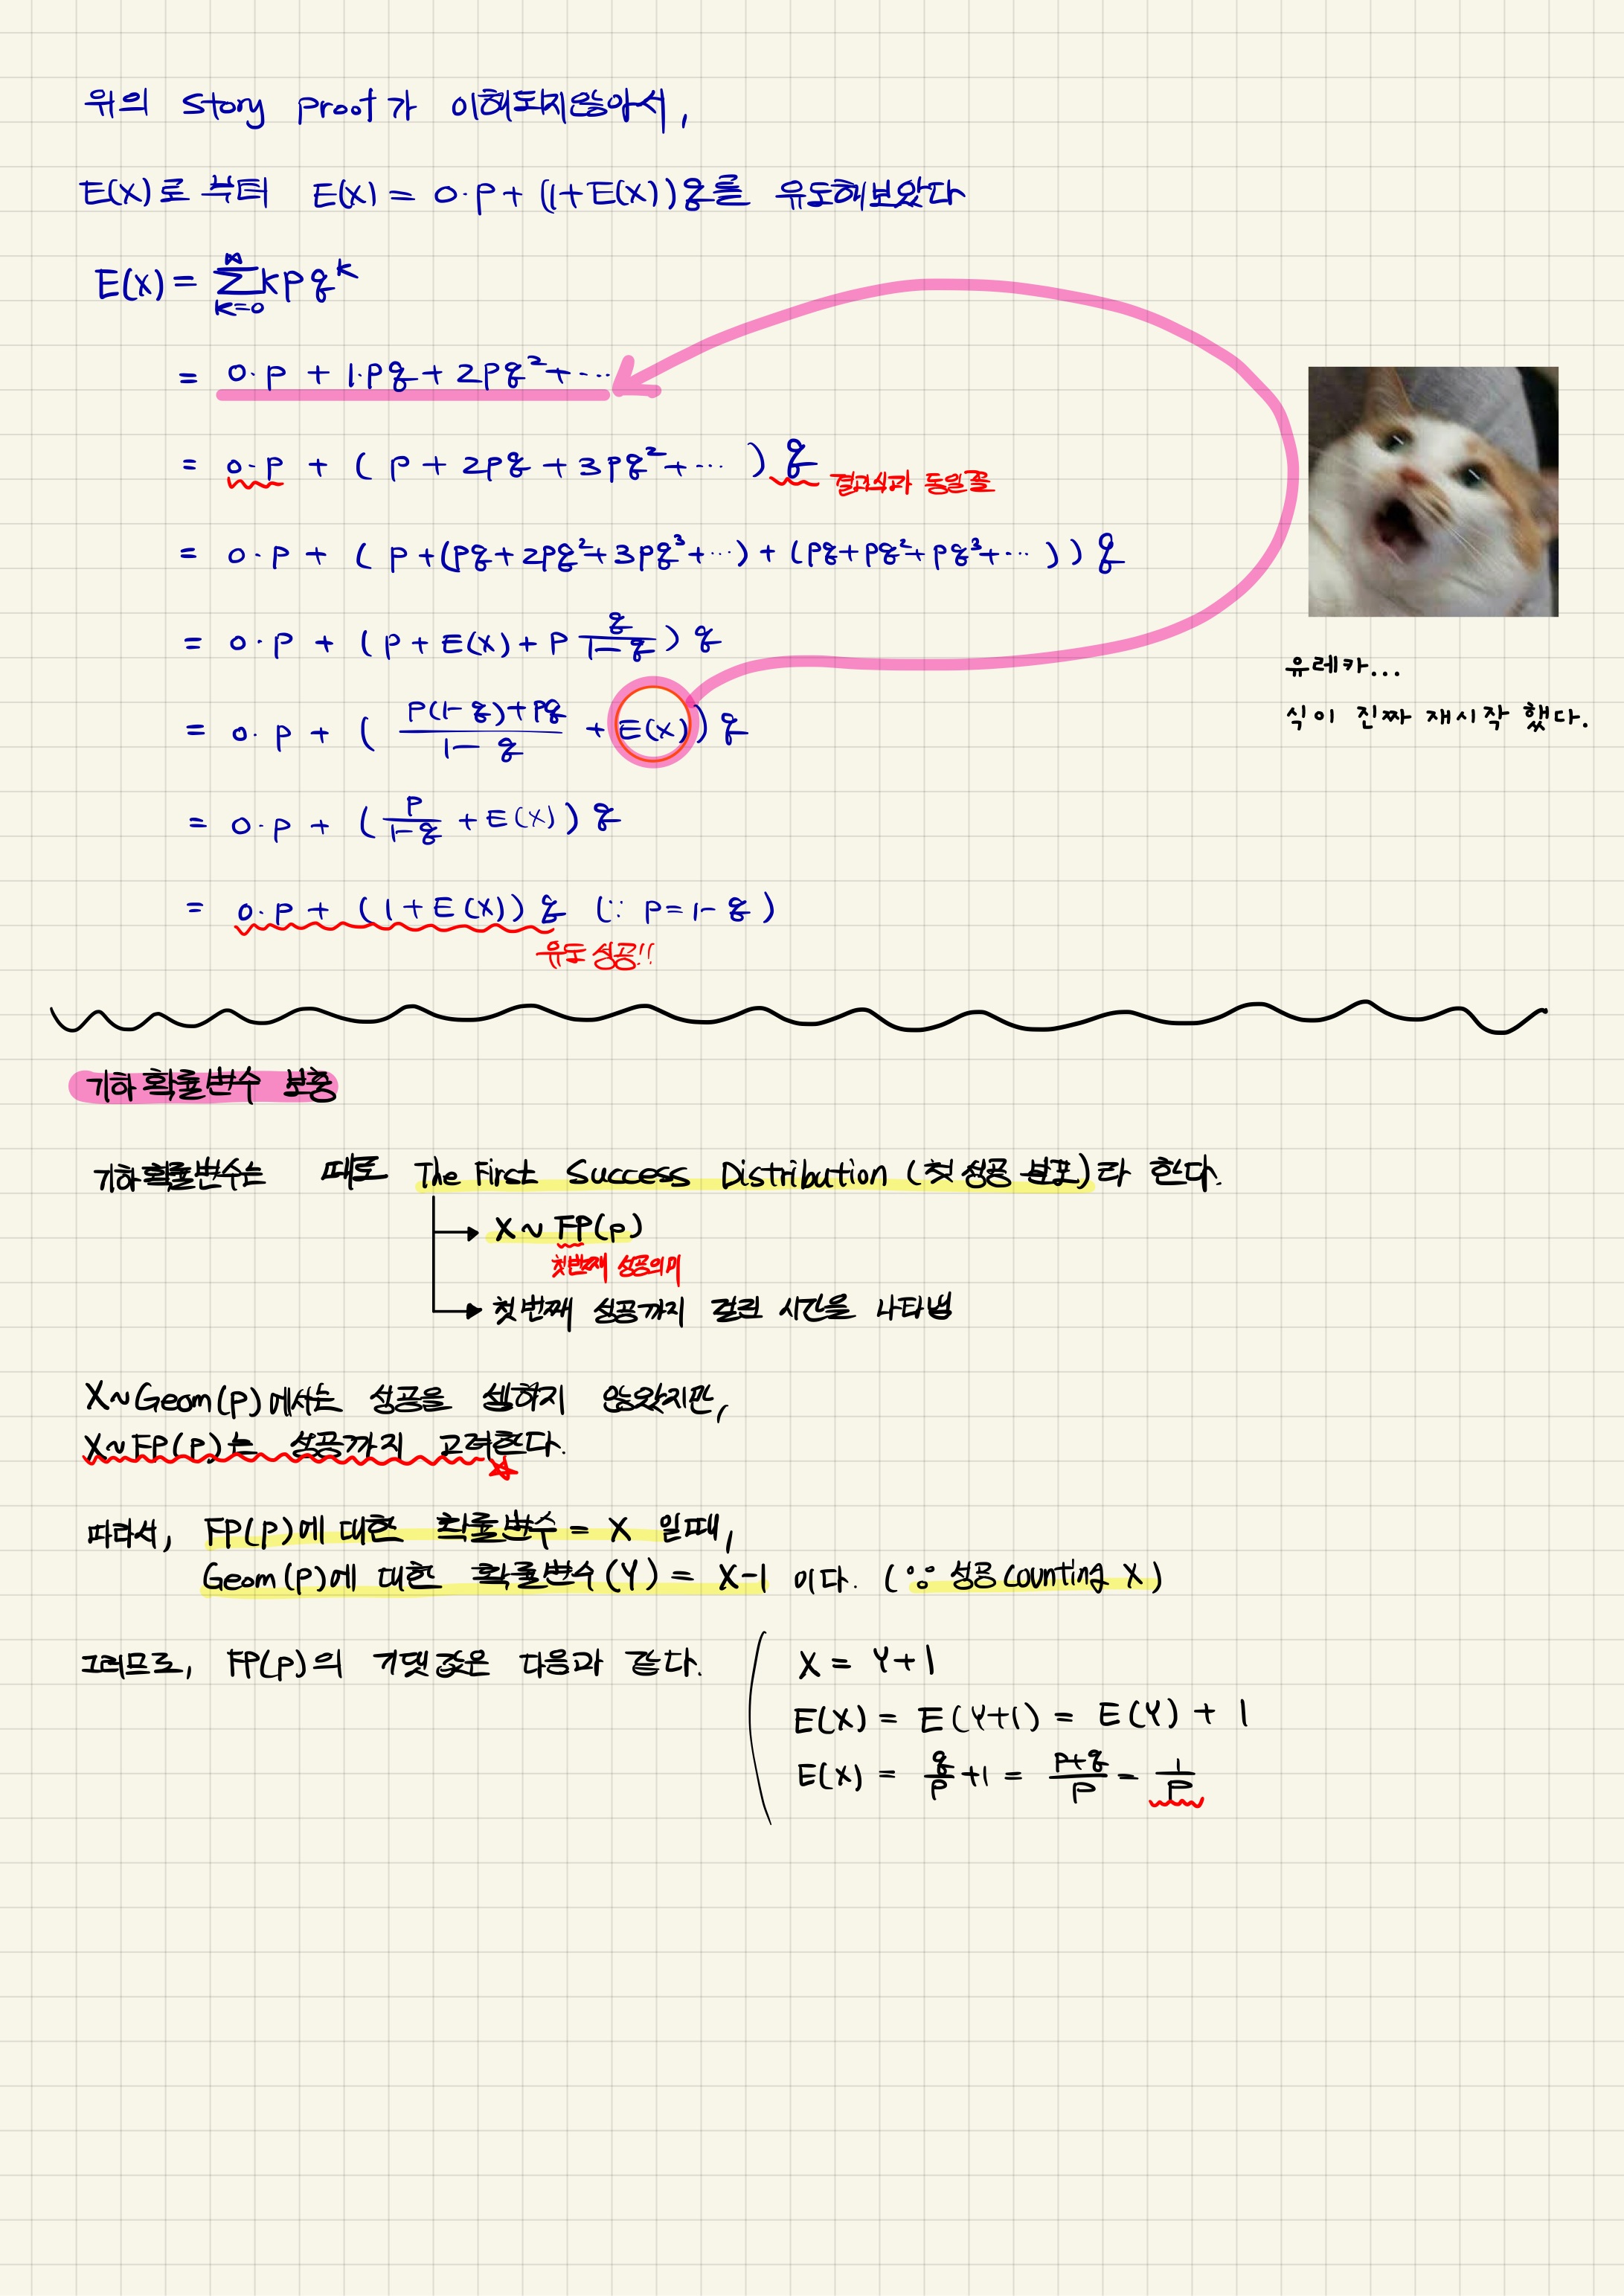 위의 story proof가 이해되지않아서,
E(X)로 부터 E(X) = 0·p + (1+E(X))q를 유도해보았다
E(X) = ∑_{k=0}^{∞} kpq^k
= 0·p + 1·pq + 2pq² + ···
= 0·p + ( p + 2pq + 3pq² + ··· ) q
결과식과 동일꼴
= 0·p + ( p + (pq + 2pq² + 3pq³ + ···) + (pq + pq² + pq³ + ··· ) ) q
= 0·p + ( p + E(X) + p q/(1-q) ) q
유레카...
= 0·p + ( (p(1-q)+pq)/(1-q) + E(X) ) q
식이 진짜 재시작 했다.
= 0·p + ( p/(1-q) + E(X) ) q
= 0·p + (1+E(X)) q (∵ p=1-q )
유도 성공!!
기하확률변수 보충
기하확률변수는 때로 The First Success Distribution (첫 성공 분포)라 한다.
X ~ FP(p)
첫번째 성공의미
첫번째 성공까지 걸린 시간을 나타냄
X~Geom(p)에서는 성공을 셈하지 않았지만,
X~FP(p)는 성공까지 고려한다.
따라서, FP(p)에 대한 확률변수 = X 일때,
Geom(p)에 대한 확률변수(Y) = X-1 이다. (∵ 성공 counting X)
그러므로, FP(p)의 기댓값은 다음과 같다.
X = Y+1
E(X) = E(Y+1) = E(Y) + 1
E(X) = q/p +1 = (p+q)/p = 1/p